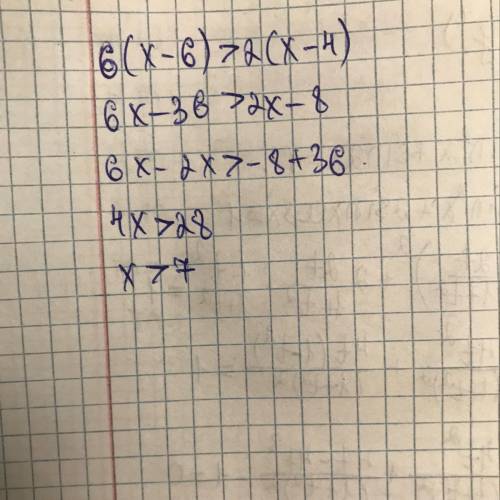 6(x-6)>2(x-4)
6x-36>2x-8
6x-2x>-8+36
4x>28
x>7